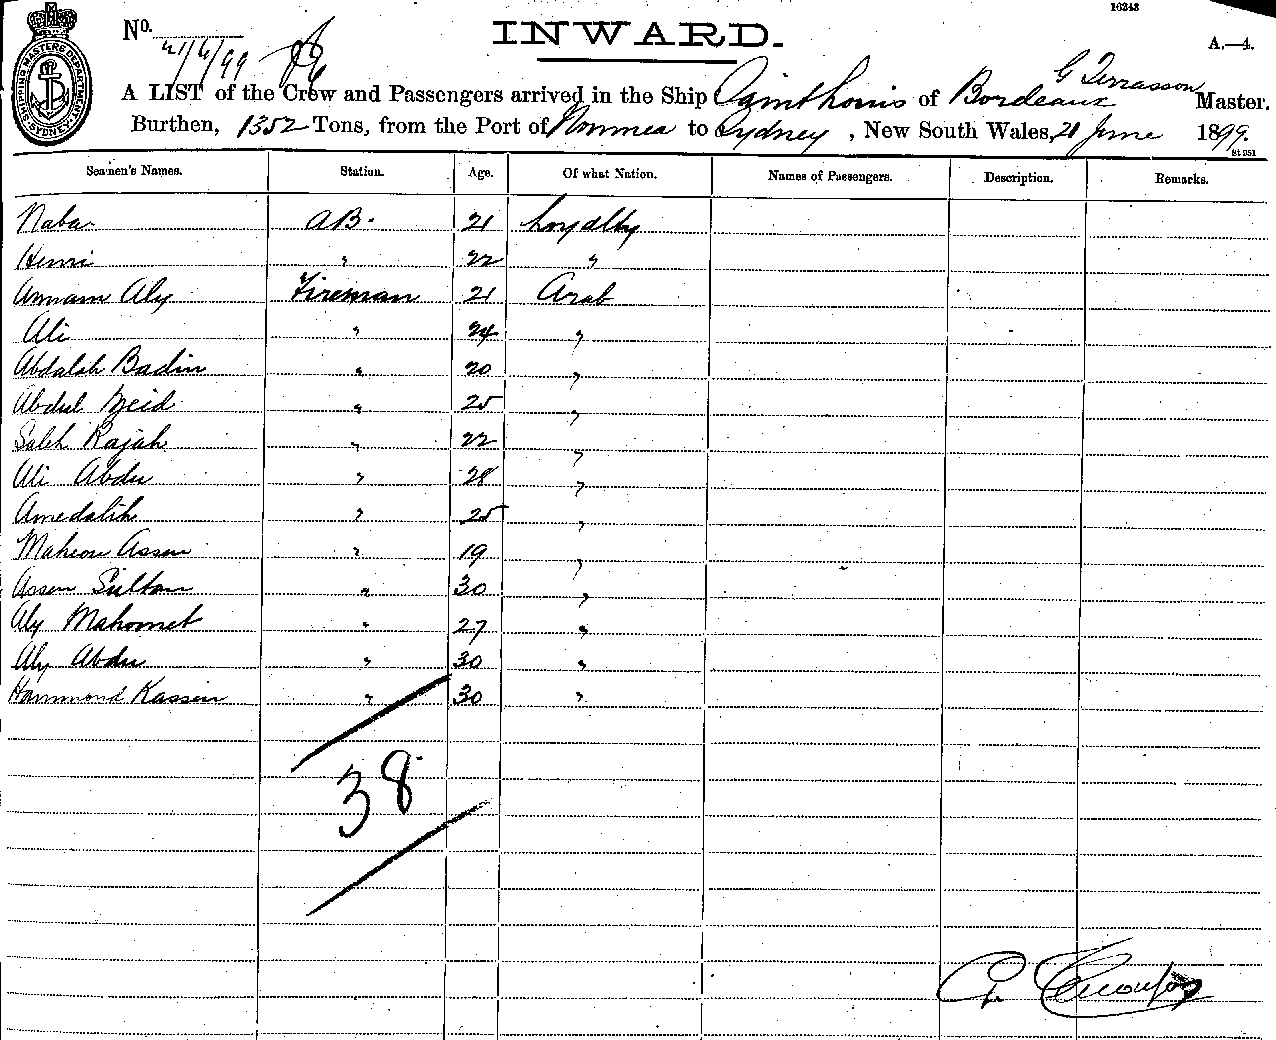 16243
No. 21/6/99
INWARD.
A.—4.
SHIPPING MASTERS DEPARTMENT SYDNEY
G Terrasson
A LIST of the Crew and Passengers arrived in the Ship of Bordeaux Master.
Burthen, 1352 Tons, from the Port of Noumea to Sydney, New South Wales, 21 June 1899.
St 951
Seamen's Names. Station. Age. Of what Nation. Names of Passengers. Description. Remarks.
Naba AB. 21 Loyalty
Henri " 22 "
Annam Aly Fireman 21 Arab
Ali " 24 "
Abdalah Badin " 20 "
Abdul Zeid " 25 "
Saleh Rajah " 22 "
Ali Abdu " 28 "
Amedalih " 25 "
Assen " 19 "
Assen Sultan " 30 "
Aly Mahomet " 27 "
Aly Abdu " 30 "
Hammond Kassein " 30 "
38